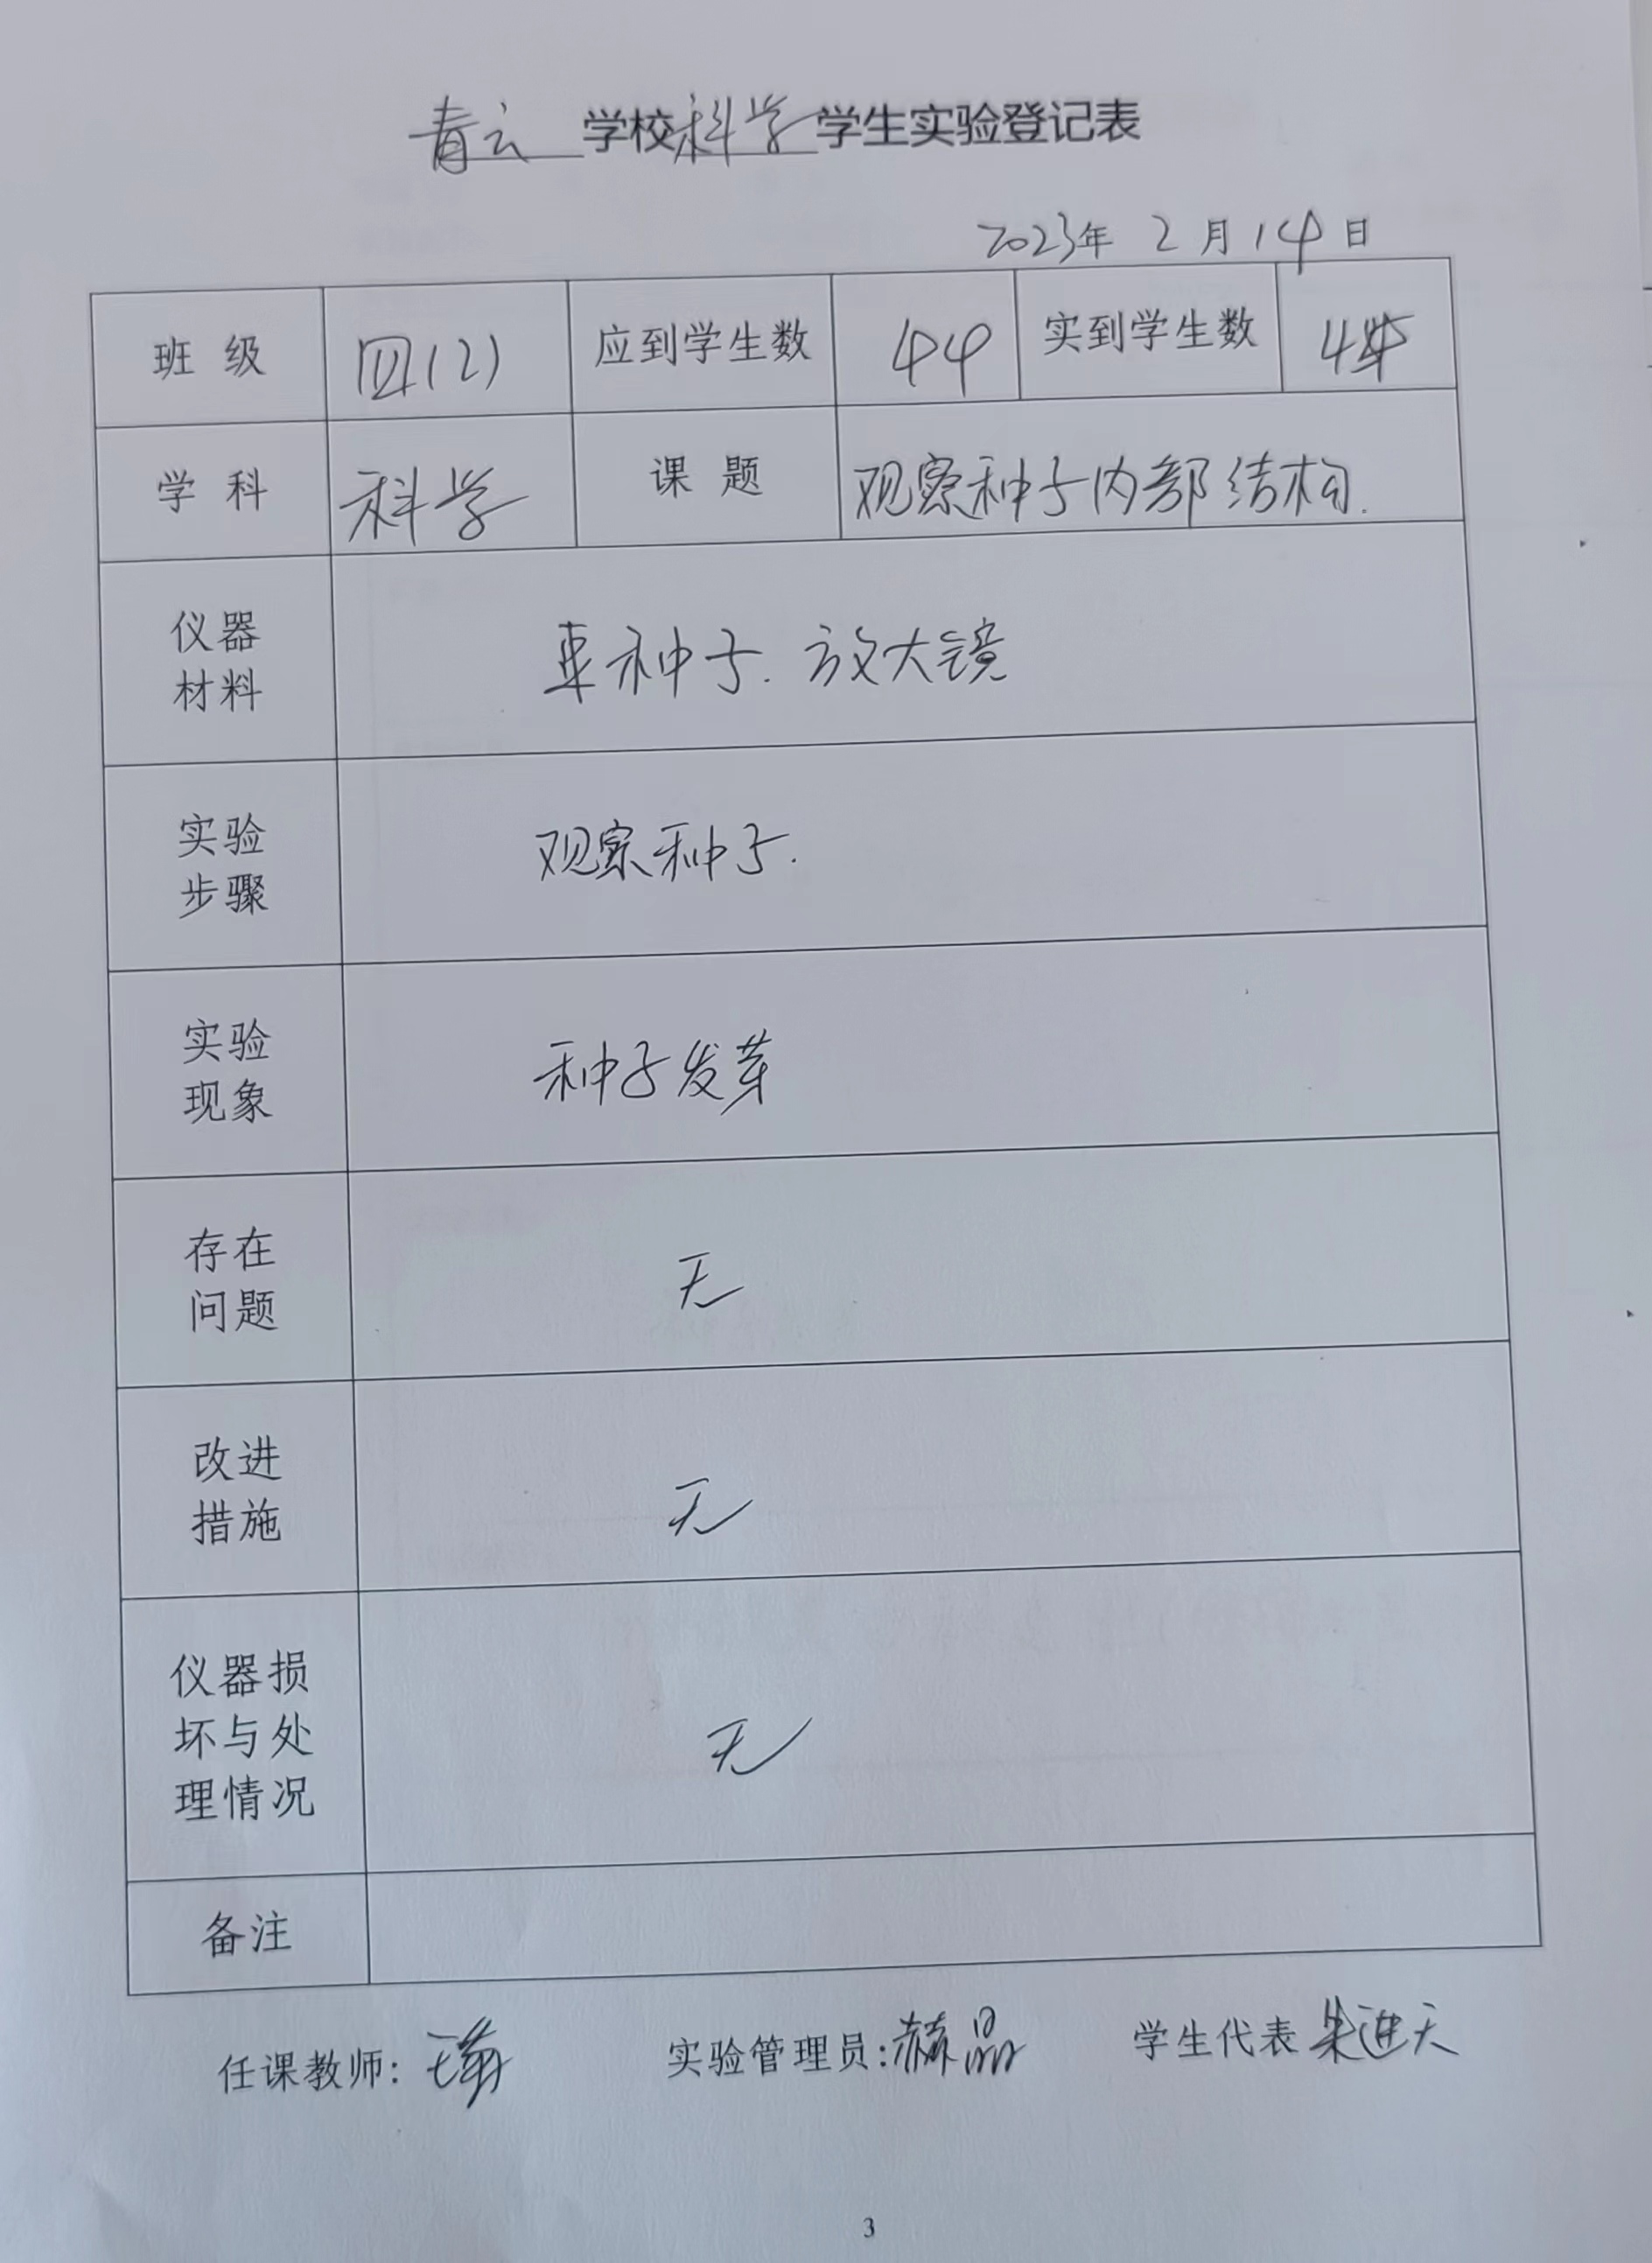 青云学校科学学生实验登记表
2023年 2 月 14 日
班 级 四(2) 应到学生数 44 实到学生数
学 科 科学 课 题 观察种子内部结构.
仪器
材料
种子. 放大镜
实验
步骤
观察种子.
实验
现象
种子发芽
存在
问题
无
改进
措施
无
仪器损
坏与处
理情况
无
备注
任课教师: 实验管理员: 学生代表
3